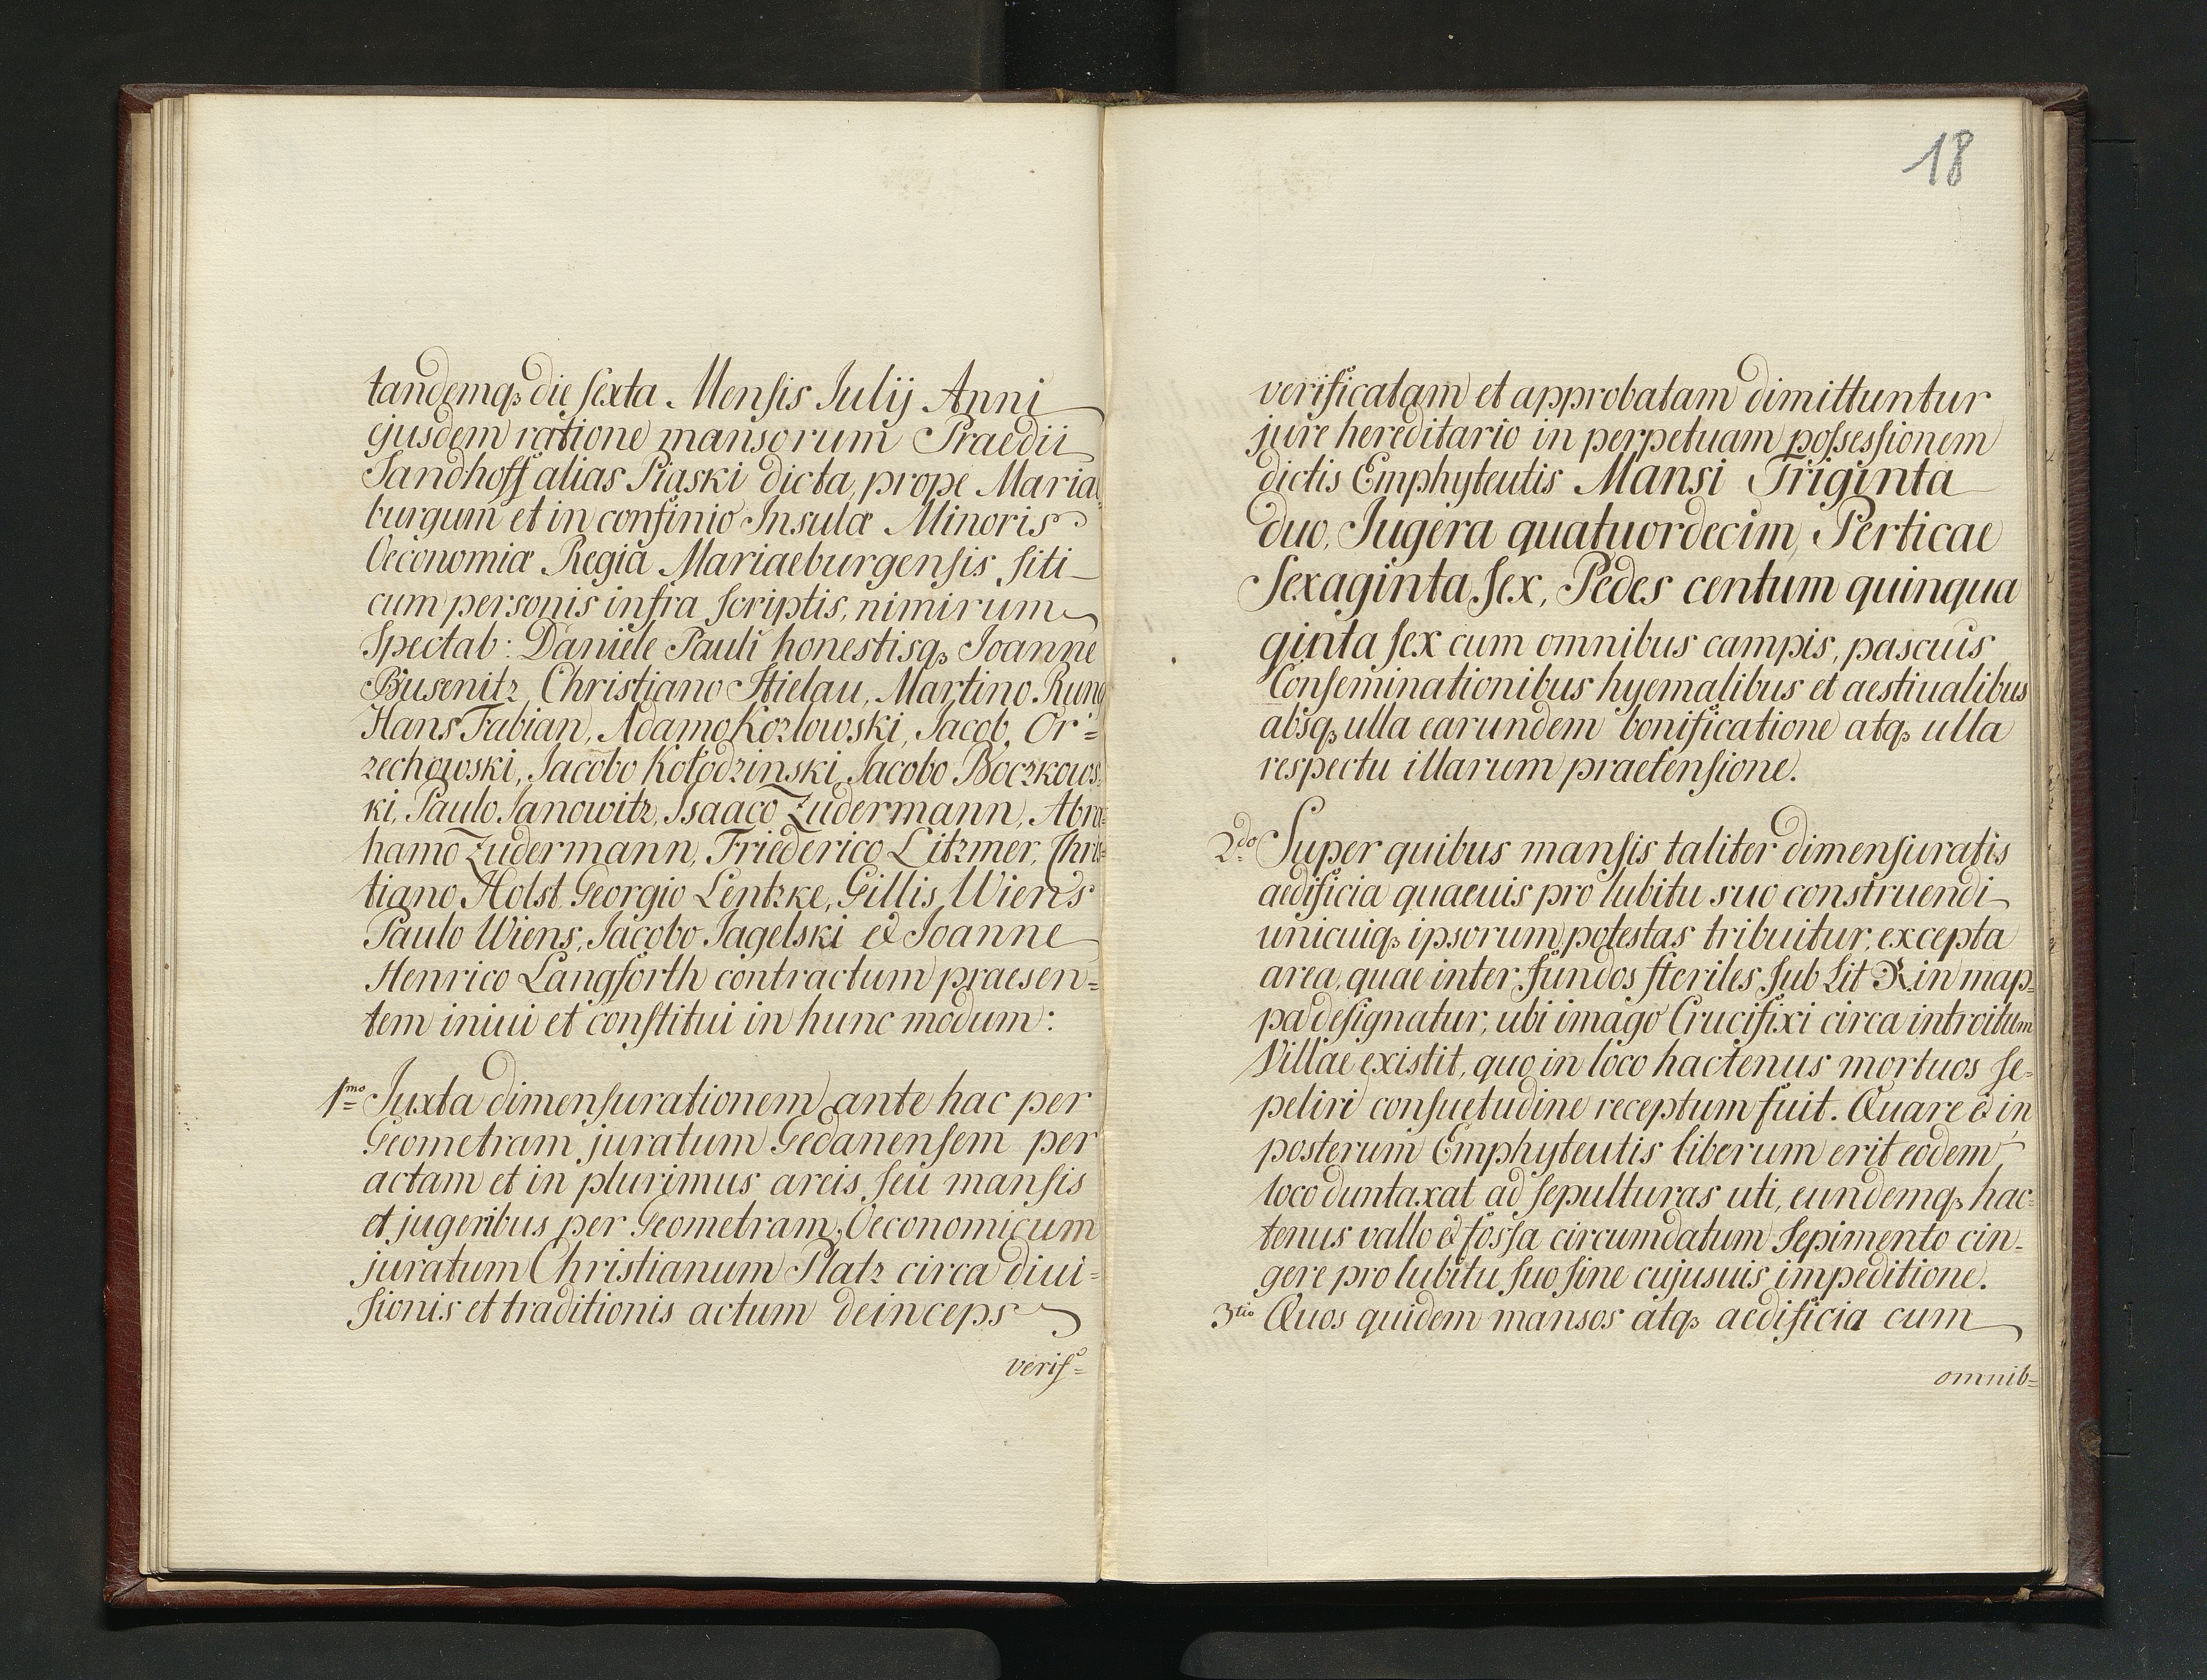 tandemq₃ die ſexta Menſis Iulij Anni
ejusdem ratione mansorum Praedii
Sandhoff alias Piaski dicta, prope Maria
burgum et in confinio Insulæ Minoris
Oeconomiæ Regiæ Mariaeburgenſis ſiti
cum personis infra ſcriptis, nimirum
Spectab: Daniele Pauli honestisq₃ Ioanne
Busenitz, Christiano Stielau, Martino Rung
Hans Fabian, Adamo Kozlowski, Jacob Or=
zechowski, Jacobo Kołodzinski, Jacobo Boczkows
ki, Paulo Janowitz, Isaaco Zudermann, Abra=
hamo Zudermann, Friederico Litzmer, Chris=
tiano Holst, Georgio Lentzke, Gillis Wiens
Paulo Wiens, Jacobo Jagelski & Joanne
Henrico Langforth contractum praesen=
tem iniui et conſtitui in hunc modum:
1mo Juxta dimenſurationem ante hac per
Geometram juratum Gedanenſem per
actam et in plurimus areis ſeu manſis
et jugeribus per Geometram Oeconomicum
juratum Christianum Platz circa diui=
ſionis et traditionis actum deinceps
verif=
18
verificatam et approbatam dimittuntur
jure hereditario in perpetuam poſsesſionem
dictis Emphyteutis Mansi Triginta
duo, Jugera quatuordecim, Perticae
Sexaginta ſex, Pedes centum quinqua
ginta ſex cum omnibus campis, pascuis
Conſeminationibus hyemalibus et aestiualibus
absq₃ ulla earundem bonificatione atq₃ ulla
respectu illarum praetenſione.
2do Super quibus manſis taliter dimenſuratis
aedificia quaeuis pro lubitu suo construendi
unicuiq₃ ipsorum potestas tribuitur, excepta
area, quae inter fundos ſteriles ſub Lit R in map=
pa deſignatur, ubi imago Crucifixi circa introitum
Villae existit, quo in loco hactenus mortuos ſe=
peliri conſuetudine receptum fuit. Quare & in
posterum Emphyteutis liberum erit eodem
loco duntaxat ad ſepulturas uti, eundemq₃ hac=
tenus vallo & foſsa circumdatum Sepimento cin=
gere pro lubitu ſuo ſine cujusuis impeditione.
3tio Quos quidem mansos atq₃ aedificia cum
omnib=